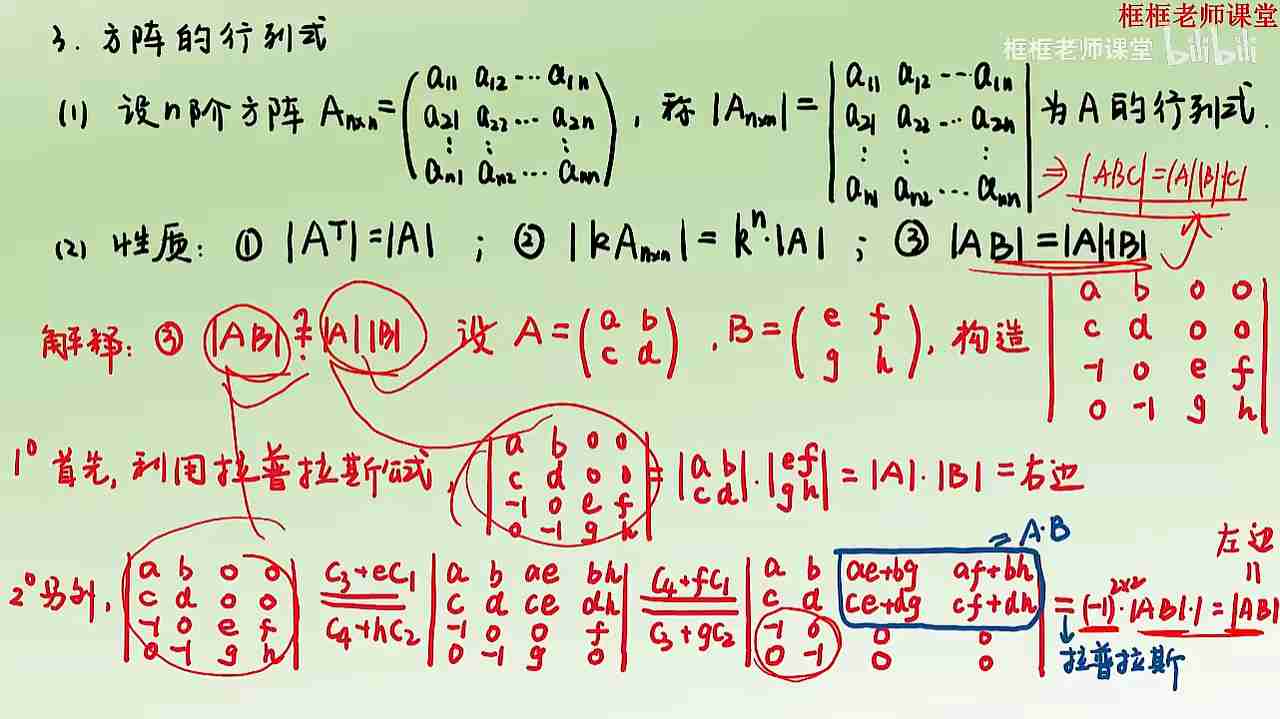 框框老师课堂
框框老师课堂 bilibili
3. 方阵的行列式
(1) 设n阶方阵 Aₙₓₙ = (a₁₁ a₁₂ ⋯ a₁ₙ; a₂₁ a₂₂ ⋯ a₂ₙ; ⋮ ⋮ ⋮; aₙ₁ aₙ₂ ⋯ aₙₙ), 称 |Aₙₓₙ| = |a₁₁ a₁₂ ⋯ a₁ₙ; a₂₁ a₂₂ ⋯ a₂ₙ; ⋮ ⋮ ⋮; aₙ₁ aₙ₂ ⋯ aₙₙ| 为A的行列式.
⇒ |ABC|=|A||B||C|
(2) 性质: ① |Aᵀ|=|A| ; ② |kAₙₓₙ|=kⁿ·|A| ; ③ |AB|=|A|·|B|
解释: ③ |AB| ≟ |A||B| 设 A=(a b; c d), B=(e f; g h), 构造 |a b 0 0; c d 0 0; -1 0 e f; 0 -1 g h|
1⁰ 首先, 利用拉普拉斯公式, |a b 0 0; c d 0 0; -1 0 e f; 0 -1 g h| = |a b; c d|·|e f; g h| = |A|·|B| = 右边
2⁰ 另外, |a b 0 0; c d 0 0; -1 0 e f; 0 -1 g h| = (C₃+eC₁, C₄+hC₂) |a b ae bh; c d ce dh; -1 0 0 f; 0 -1 g 0| = (C₄+fC₁, C₃+gC₂) |a b ae+bg af+bh; c d ce+dg cf+dh; -1 0 0 0; 0 -1 0 0| = (-1)²ˣ²·|AB|·1 = |AB|
= A·B
左边
=
拉普拉斯